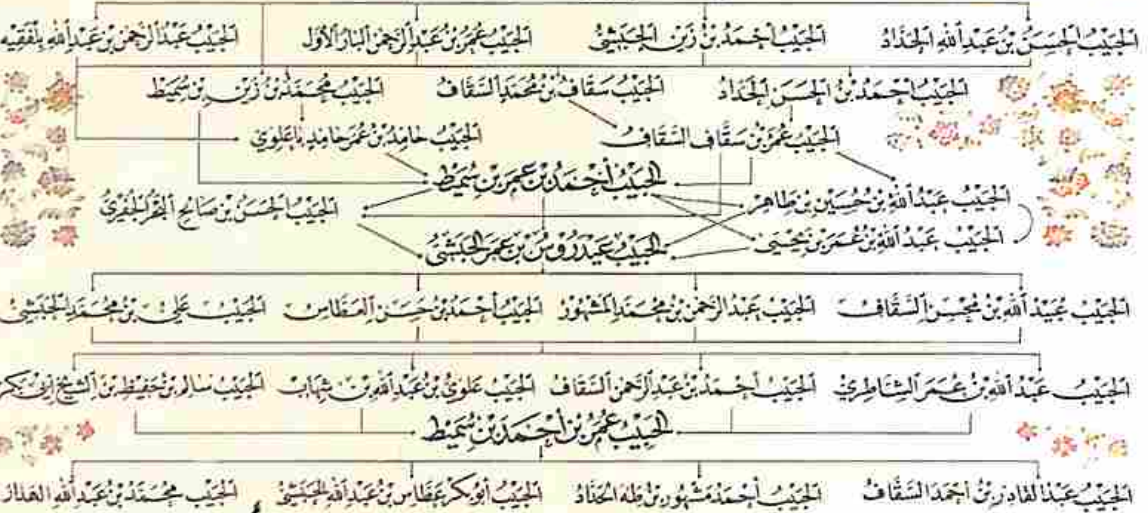 الحبيب الحسن بن عبد الله الحداد الحبيب أحمد بن زين الحبشي الحبيب عمر بن عبد الرحمن البار الأول الحبيب عبد الرحمن بن عبد الله بلفقيه
الحبيب أحمد بن الحسن الحداد الحبيب سقاف بن محمد السقاف الحبيب محمد بن زين بن سميط
الحبيب عمر بن سقاف السقاف الحبيب حامد بن عمر حامد باعلوي
الحبيب أحمد بن عمر بن سميط
الحبيب عبد الله بن حسين بن طاهر الحبيب الحسن بن صالح البحر الجفري
الحبيب عبد الله بن عمر بن يحيى
الحبيب عيدروس بن عمر الحبشي
الحبيب عبيد الله بن محسن السقاف الحبيب عبد الرحمن بن محمد المشهور الحبيب أحمد بن حسن العطاس الحبيب علي بن محمد الحبشي
الحبيب عبد الله بن عمر الشاطري الحبيب أحمد بن عبد الرحمن السقاف الحبيب علوي بن عبد الله بن شهاب الحبيب سالم بن حفيظ بن الشيخ أبي بكر
الحبيب عمر بن أحمد بن سميط
الحبيب عبد القادر بن أحمد السقاف الحبيب أحمد مشهور بن طه الحداد الحبيب أبو بكر عطاس بن عبد الله الحبشي الحبيب محمد بن عبد الله الهدار